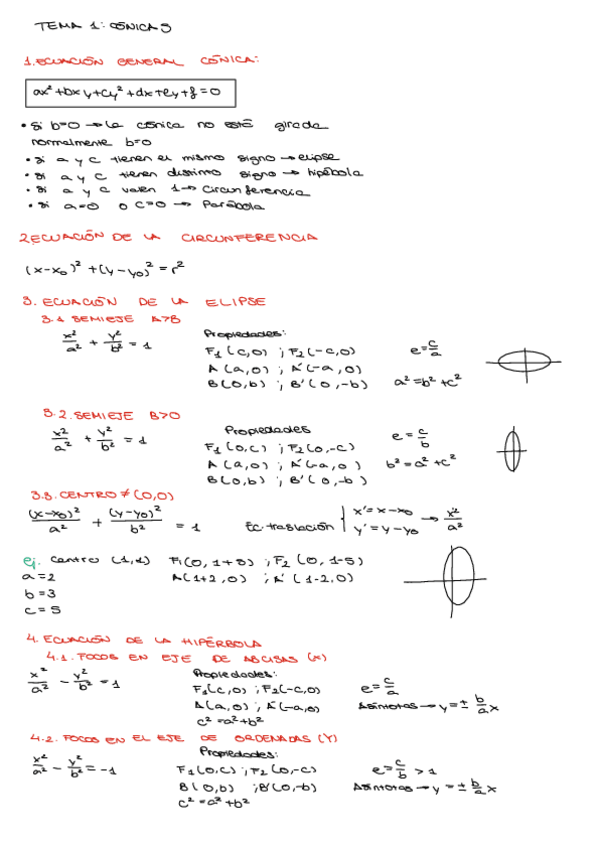 TEMA 1: CÓNICAS
1. ECUACIÓN GENERAL CÓNICA:
ax² + bxy + cy² + dx + ey + f = 0
• Si b=0 → la cónica no está girada
normalmente b=0
• Si a y c tienen el mismo signo → elipse
• Si a y c tienen distinto signo → hipébola
• Si a y c valen 1 → circunferencia
• Si a=0 o c=0 → Parábola
2. ECUACIÓN DE LA CIRCUNFERENCIA
(x-x₀)² + (y-y₀)² = r²
3. ECUACIÓN DE LA ELIPSE
3.1 SEMIEJE A>B
x²/a² + y²/b² = 1
Propiedades:
F₁(c,0) ; F₂(-c,0) e = c/a
A(a,0) ; A'(-a,0)
B(0,b) ; B'(0,-b) a² = b² + c²
3.2. SEMIEJE B>0
x²/a² + y²/b² = 1
Propiedades
F₁(0,c) ; F₂(0,-c) e = c/b
A(a,0) ; A'(-a,0) b² = a² + c²
B(0,b) ; B'(0,-b)
3.3. CENTRO ≠ (0,0)
(x-x₀)²/a² + (y-y₀)²/b² = 1 Ec. traslación { x' = x-x₀ y' = y-y₀ → x²/a²
ej. centro (1,1) F₁(0,1+5) ; F₂(0,1-5)
a=2 A(1+2,0) ; A'(1-2,0)
b=3
c=5
4. ECUACIÓN DE LA HIPÉRBOLA
4.1. FOCOS EN EJE DE ABCISAS (X)
x²/a² - y²/b² = 1
Propiedades:
F₁(c,0) ; F₂(-c,0) e = c/a
A(a,0) ; A'(-a,0) Asíntotas → y = ± b/a x
c² = a² + b²
4.2. FOCOS EN EL EJE DE ORDENADAS (Y)
x²/a² - y²/b² = -1
Propiedades:
F₁(0,c) ; F₂(0,-c) e = c/b > 1
B(0,b) ; B'(0,-b) Asíntotas → y = ± b/a x
c² = a² + b²